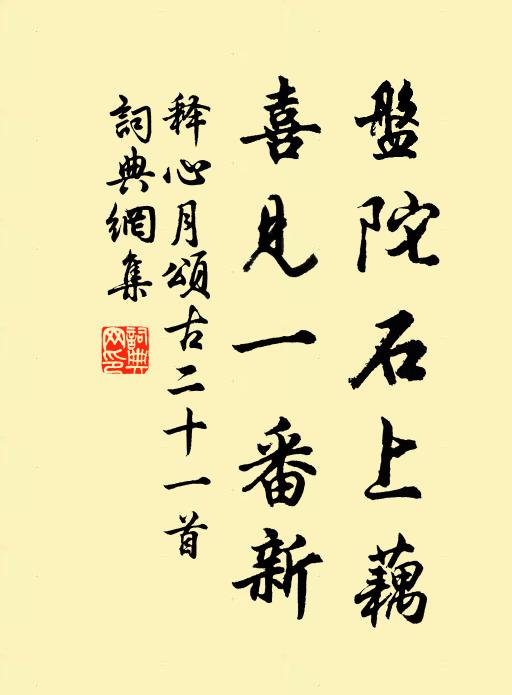 盤陀石上藕
喜見一番新
释心月頌古二十一首
詞典網集
詞典網印